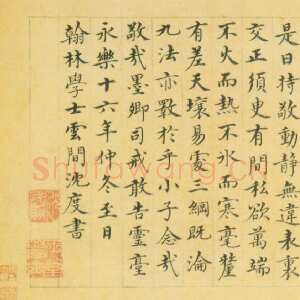 是曰持敬動靜無違表裏
交正須臾有間私欲萬端
不火而熱不氷而寒毫釐
有差天壤易處三綱既淪
九法亦斁於乎小子念哉
敬哉墨卿司戒敢告靈臺
永樂十六年仲冬至日
翰林學士雲間沈度書